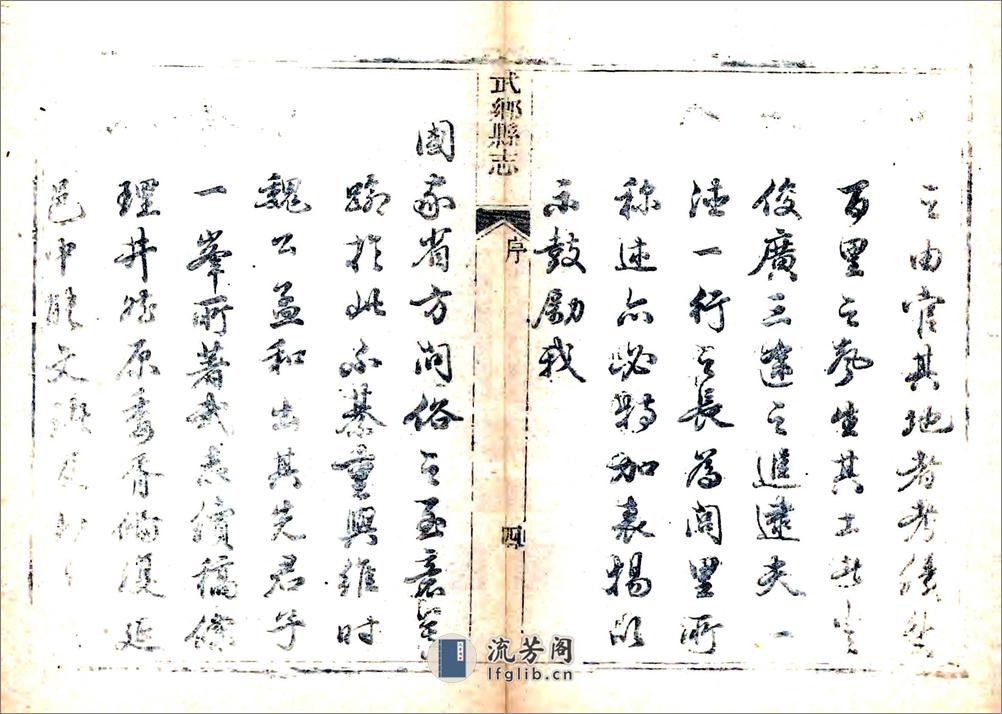 之由官其地者考績
百里之勞生其土者
俊廣三逮之進逮夫一
陸一行之長為閭里所
稱述亦必特加表揚以
示鼓勵我
武鄉縣志
序
四
國家省方問俗之至意
蹟於此不綦重與維時
魏公孟和出其先君子
一峯所著武志續稿條
理井然原委胥備復延
邑中能文
流芳阁
lfglib.cn